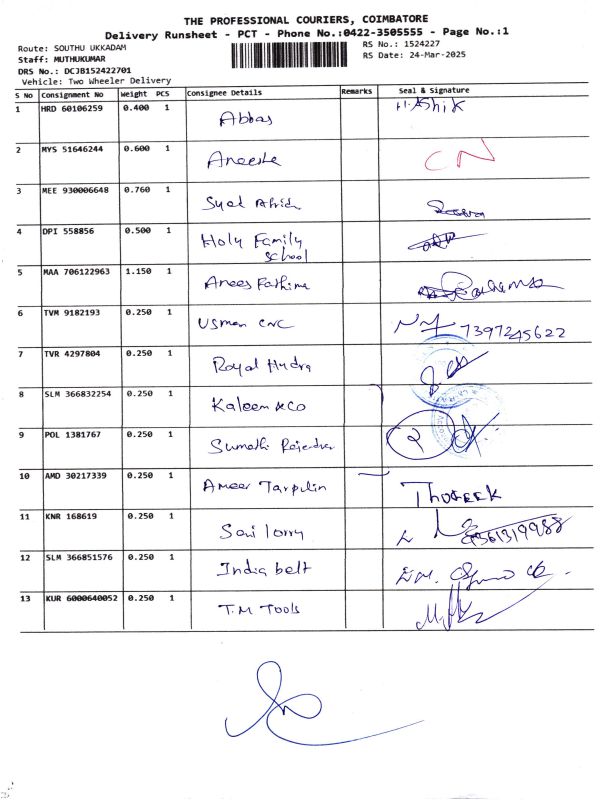 THE PROFESSIONAL COURIERS, COIMBATORE
Delivery Runsheet - PCT - Phone No.:0422-3505555 - Page No.:1
Route: SOUTHU UKKADAM
RS No.: 1524227
Staff: MUTHUKUMAR
RS Date: 24-Mar-2025
DRS No.: DCJB152422701
Vehicle: Two Wheeler Delivery
S No Consignment No Weight PCS Consignee Details Remarks Seal & Signature
1 HRD 60106259 0.400 1 Abbas H. Ashik
2 MYS 51646244 0.600 1 Aneesha CN
3 MEE 930006648 0.760 1 Syed Afridi
4 DPI 558856 0.500 1 Holy Family School
5 MAA 706122963 1.150 1 Anees Fathima
6 TVM 9182193 0.250 1 Usman CNC 7397245622
7 TVR 4297804 0.250 1 Royal Hydra
8 SLM 366832254 0.250 1 Kaleem & Co
9 POL 1381767 0.250 1 Sumathi Rajendran
10 AMD 30217339 0.250 1 Ameer Tarpulin Thofeek
11 KNR 168619 0.250 1 Soni lorry
12 SLM 366851576 0.250 1 India belt
13 KUR 6000640052 0.250 1 T.M Tools